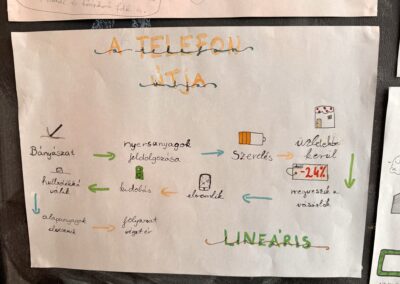 A TELEFON
ÚTJA
Bányászat
nyersanyagok
feldolgozása
szerelés
üzletekbe
kerül
-24%
megveszik a
vásárlók
elromlik
kidobás
hulladékká
válik
alapanyagok
elvesznek
folyamat
véget ér
LINEÁRIS